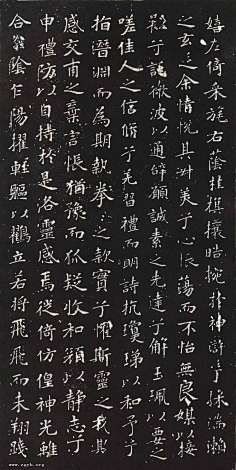 嬉左倚采旄右蔭桂旗攘皓腕於神滸兮採湍瀨
之玄芝余情悅其淑美兮心振蕩而不怡無良媒以接
歡兮託微波以通辭願誠素之先達兮解玉珮以要之
嗟佳人之信脩兮羌習禮而明詩抗瓊珶以和予兮
指潛淵而為期執拳〻之款實兮懼斯靈之我欺
感交甫之棄言悵猶豫而狐疑收和顏以靜志兮
申禮防以自持於是洛靈感焉徙倚仿偟神光離
合乍蔭乍陽擢輕軀以鶴立若將飛飛而未翔踐